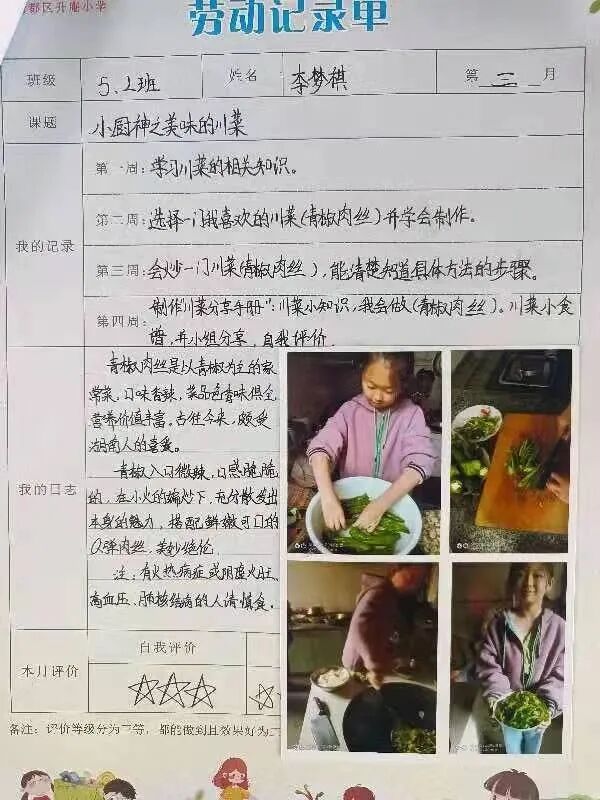 都区升庵小学
劳动记录单
班级 5.2班 姓名 李梦祺 第 三 月
课题 小厨神之美味的川菜
我的记录
第一周：学习川菜的相关知识。
第二周：选择一门我喜欢的川菜(青椒肉丝)并学会制作。
第三周：会炒一门川菜(青椒肉丝)，能清楚知道具体方法的步骤。
第四周：制作"川菜分享手册"：川菜小知识，我会做(青椒肉丝)。川菜小食
谱，并小组分享，自我评价.
我的日志
青椒肉丝是以青椒为主的家
常菜，口味香辣，菜品色香味俱全，
营养价值丰富。古往今来，颇受
湖南人的喜爱。
青椒入口微辣，口感脆脆
的，在小火的煸炒下，充分散发出
本身的魅力，搭配鲜嫩可口的
Q弹肉丝，美妙绝伦
注：有火热病症或阴虚火旺、
高血压、肺核结病的人请慎食。
本月评价
自我评价
备注：评价等级分为三等，都能做到且效果好为三